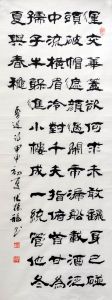 運交華蓋欲何求未敢翻身已碰
頭破帽遮顏過鬧市漏船載酒泛
中流橫眉冷對千夫指俯首甘為
孺子牛躲進小樓成一統管他冬
夏與春穐
魯迅詩甲申初夏